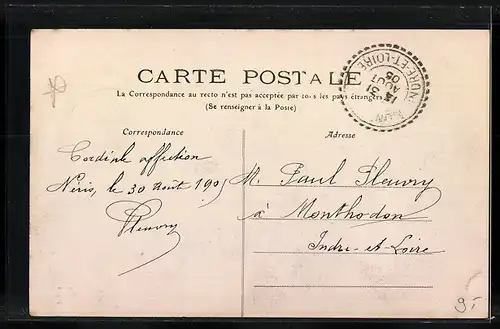 CARTE POSTALE
La Correspondance au recto n'est pas acceptée par tous les pays étrangers
(Se renseigner à la Poste)
INDRE-ET-LOIRE
31
AOUT
05
Correspondance
Adresse
Cordiale affection
Néris, le 30 Août 1905
Fleury
M. Paul Fleury
à Monthodon
Indre-et-Loire
9.-